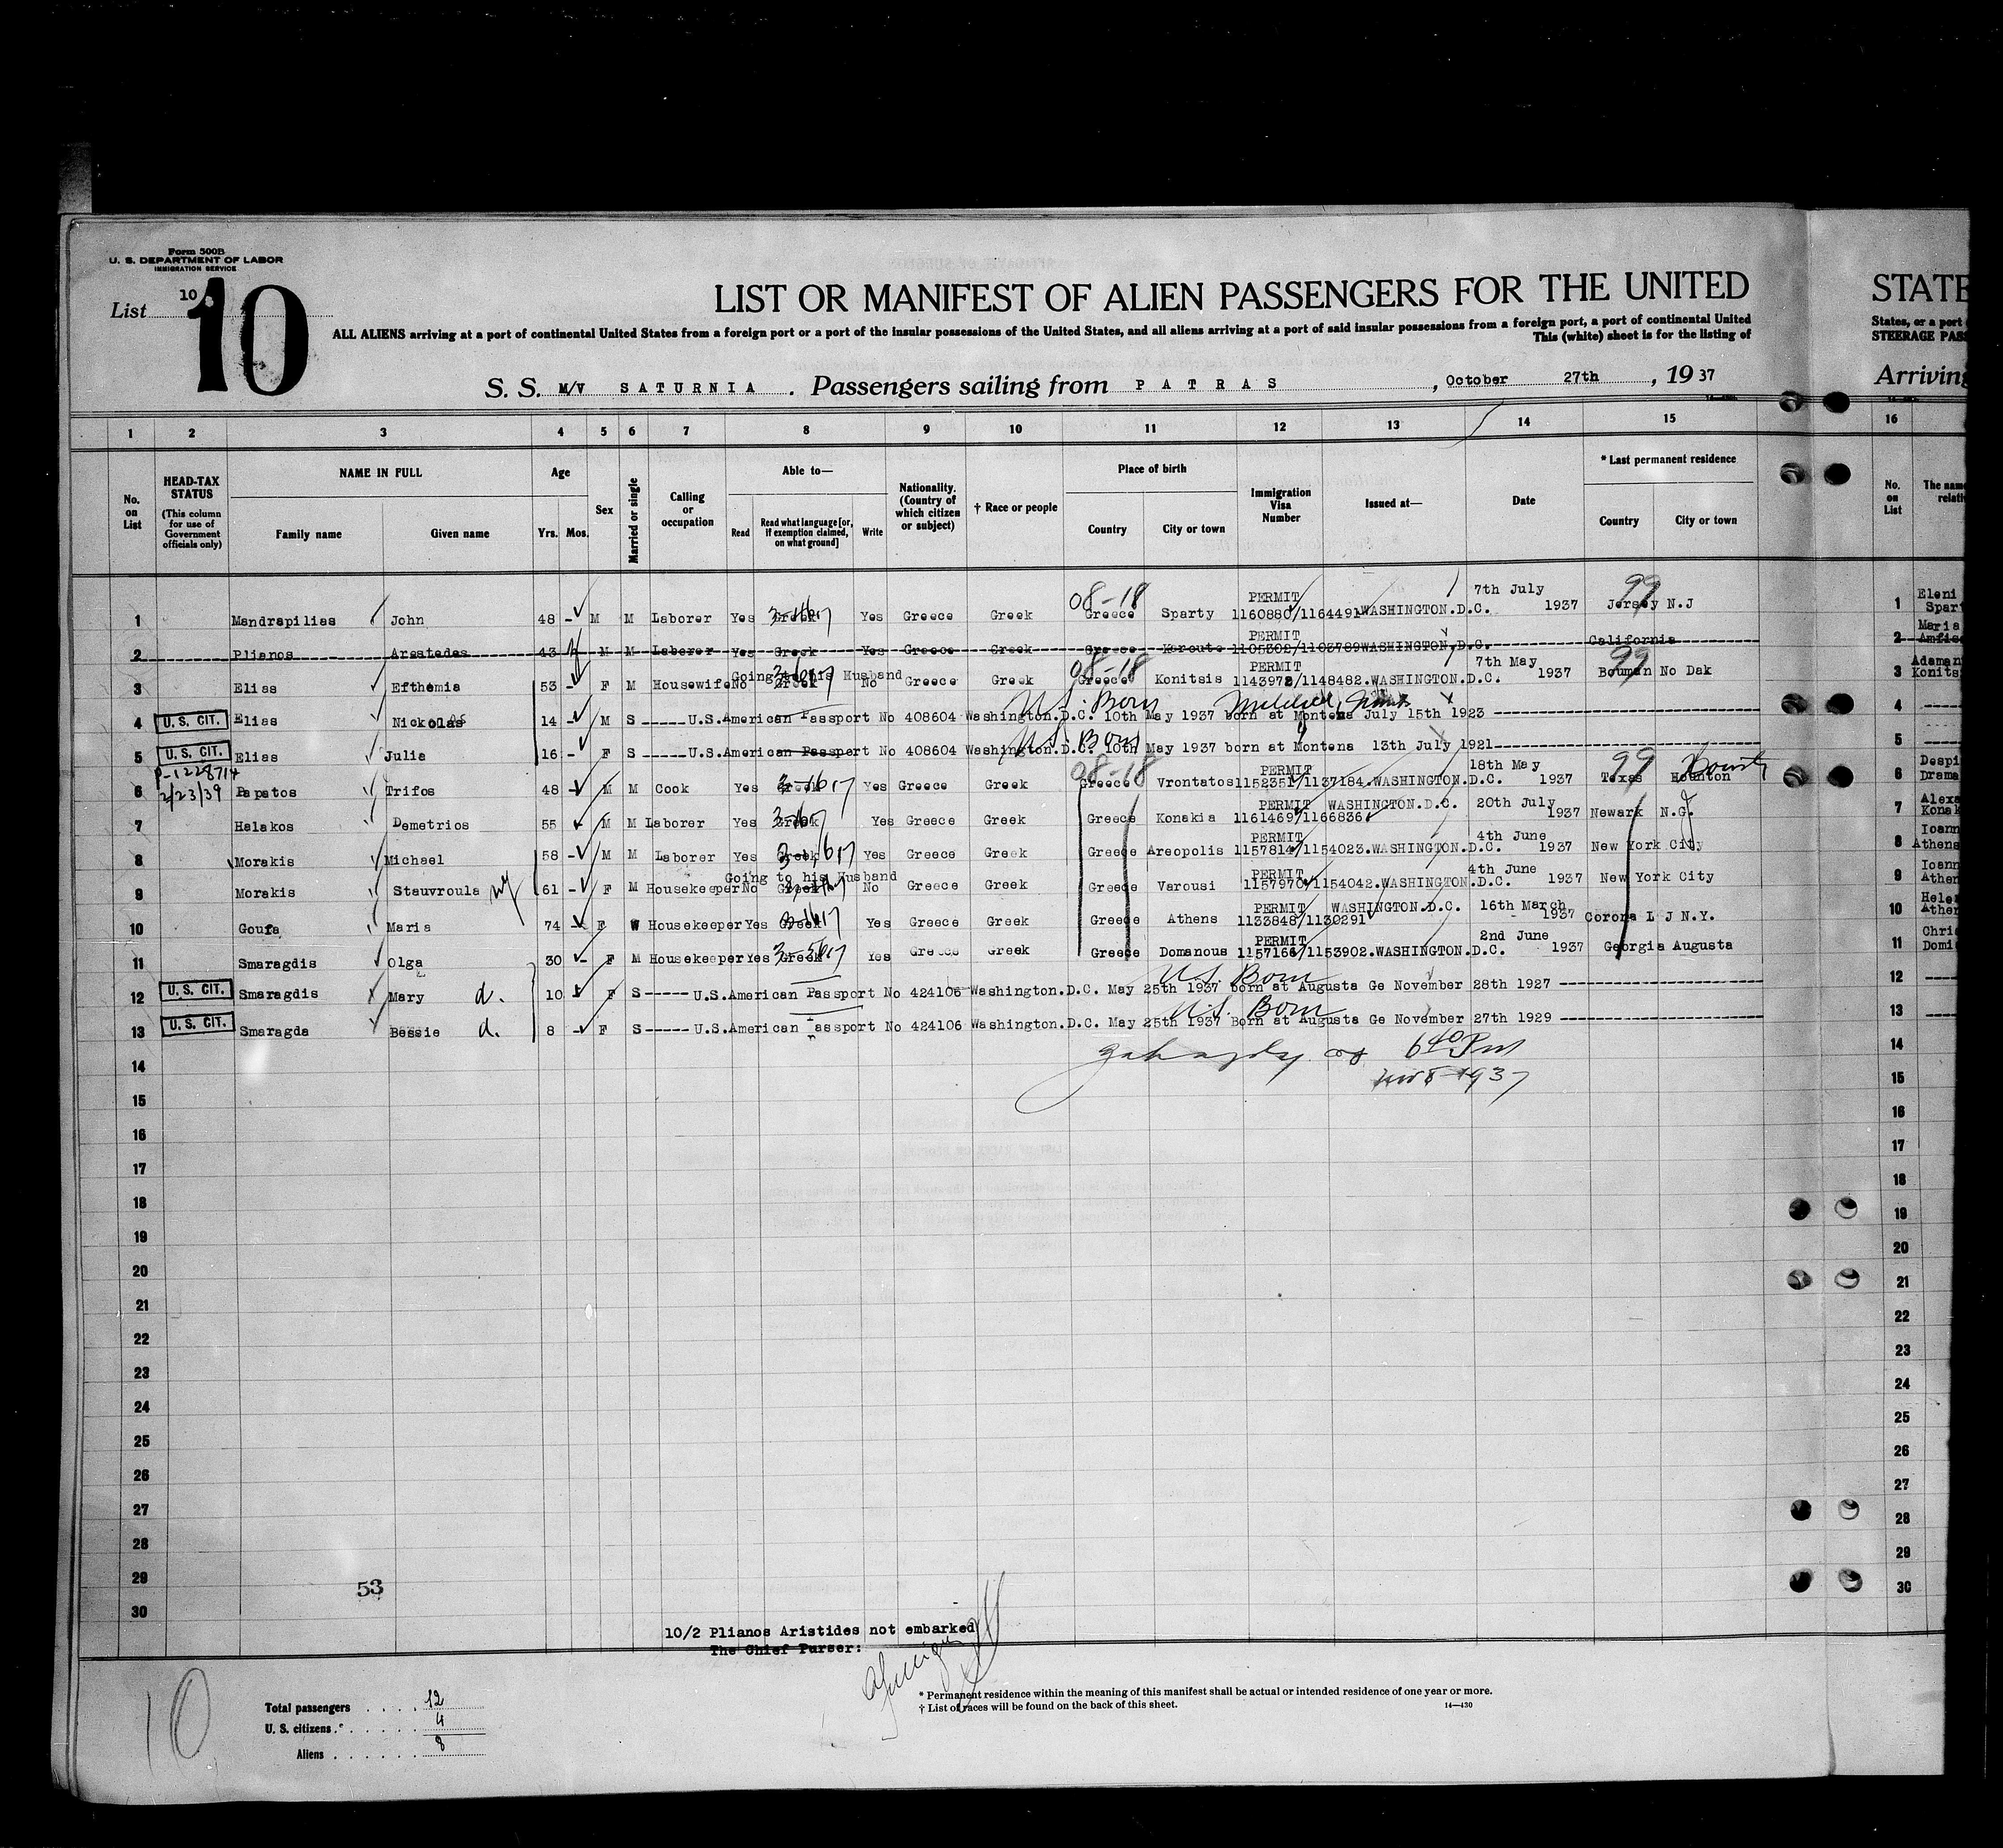 Form 500B
U. S. DEPARTMENT OF LABOR
IMMIGRATION SERVICE
List 10
10
LIST OR MANIFEST OF ALIEN PASSENGERS FOR THE UNITED
STATE
ALL ALIENS arriving at a port of continental United States from a foreign port or a port of the insular possessions of the United States, and all aliens arriving at a port of said insular possessions from a foreign port, a port of continental United
States, or a port
This (white) sheet is for the listing of
STEERAGE PASS
S. S. M/V SATURNIA. Passengers sailing from PATRAS, October 27th, 1937
Arriving
1 2 3 4 5 6 7 8 9 10 11 12 13 14 15 16
No. on List
HEAD-TAX STATUS (This column for use of Government officials only)
NAME IN FULL
Family name Given name
Age
Yrs. Mos.
Sex
Married or single
Calling or occupation
Able to—
Read Read what language [or, if exemption claimed, on what ground] Write
Nationality. (Country of which citizen or subject)
† Race or people
Place of birth
Country City or town
Immigration Visa Number
Issued at—
Date
* Last permanent residence
Country City or town
No. on List
The nam relati
1 Mandrapilias John 48 - M M Laborer Yes Greek Yes Greece Greek 08-18 Greece Sparty PERMIT 1160880/1164491 WASHINGTON.D.C. 7th July 1937 99 Jersey N.J 1 Eleni Spar
2 Plianos Arestedes 43 M M Laborer Yes Greek Yes Greece Greek Greece Keroute PERMIT 1105302/1103789 WASHINGTON.D.C. California 2 Maria Amfiss
3 Elias Efthemia 53 - F M Housewife No Going to his Husband Greek No Greece Greek 08-18 Greece Konitsis PERMIT 1143972/1148482.WASHINGTON.D.C. 7th May 1937 99 Bouman No Dak 3 Adaman Konits
4 U. S. CIT. Elias Nickolas 14 - M S ----- U.S.American Passport No 408604 Washington.D.C. 10th May 1937 born at Montena July 15th 1923 U.S. Born 4
5 U. S. CIT. Elias Julia 16 - F S ----- U.S.American Passport No 408604 Washington.D.C. 10th May 1937 born at Montena 13th July 1921 U.S. Born 5
P-1228714
2/23/39
6 Papatos Trifos 48 - M M Cook Yes Greek Yes Greece Greek 08-18 Greece Vrontatos PERMIT 1152351/1137184.WASHINGTON.D.C. 18th May 1937 99 Texas Hounton 6 Despi Drama
7 Halakos Demetrios 55 - M M Laborer Yes Greek Yes Greece Greek Greece Konakia PERMIT 1161469/1166836 WASHINGTON.D.C. 20th July 1937 Newark N.G. J 7 Alexa Konak
8 Morakis Michael 58 - M M Laborer Yes Greek Yes Greece Greek Greece Areopolis PERMIT 1157814/1154023.WASHINGTON.D.C. 4th June 1937 New York City 8 Ioann Athens
9 Morakis Stauvroula wf 61 - F M Housekeeper No Going to his Husband Greek No Greece Greek Greece Varousi PERMIT 1157970/1154042.WASHINGTON.D.C. 4th June 1937 New York City 9 Ioann Athen
10 Goufa Maria 74 - F W Housekeeper Yes Greek Yes Greece Greek Greece Athens PERMIT 1133848/1130291 WASHINGTON.D.C. 16th March 1937 Corona L J N.Y. 10 Helen Athen
11 Smaragdis Olga 30 - F M Housekeeper Yes Greek Yes Greece Greek Greece Domanous PERMIT 1157166/1153902.WASHINGTON.D.C. 2nd June 1937 Georgia Augusta 11 Chri Domi
12 U. S. CIT. Smaragdis Mary d. 10 F S ----- U.S.American Passport No 424106 Washington.D.C. May 25th 1937 born at Augusta Ge November 28th 1927 U.S. Born 12
13 U. S. CIT. Smaragda Bessie d. 8 - F S ----- U.S.American Passport No 424106 Washington.D.C. May 25th 1937 Born at Augusta Ge November 27th 1929 U.S. Born 13
14 640 Pm 14
15 Nov 8 1937 15
16 16
17 17
18 18
19 19
20 20
21 21
22 22
23 23
24 24
25 25
26 26
27 27
28 28
29 53 29
30 30
10/2 Plianos Aristides not embarked
The Chief Purser:
10
Total passengers 12
U. S. citizens 4
Aliens 8
* Permanent residence within the meaning of this manifest shall be actual or intended residence of one year or more.
† List of races will be found on the back of this sheet. 14—430